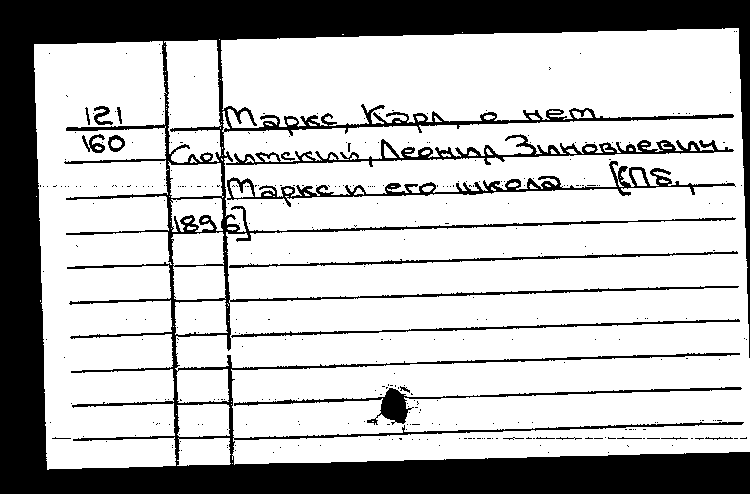 121 Маркс, Карл, о нем.
160 Слонимский, Леонид Зиновьевич.
Маркс и его школа. [СПб.,
1896]